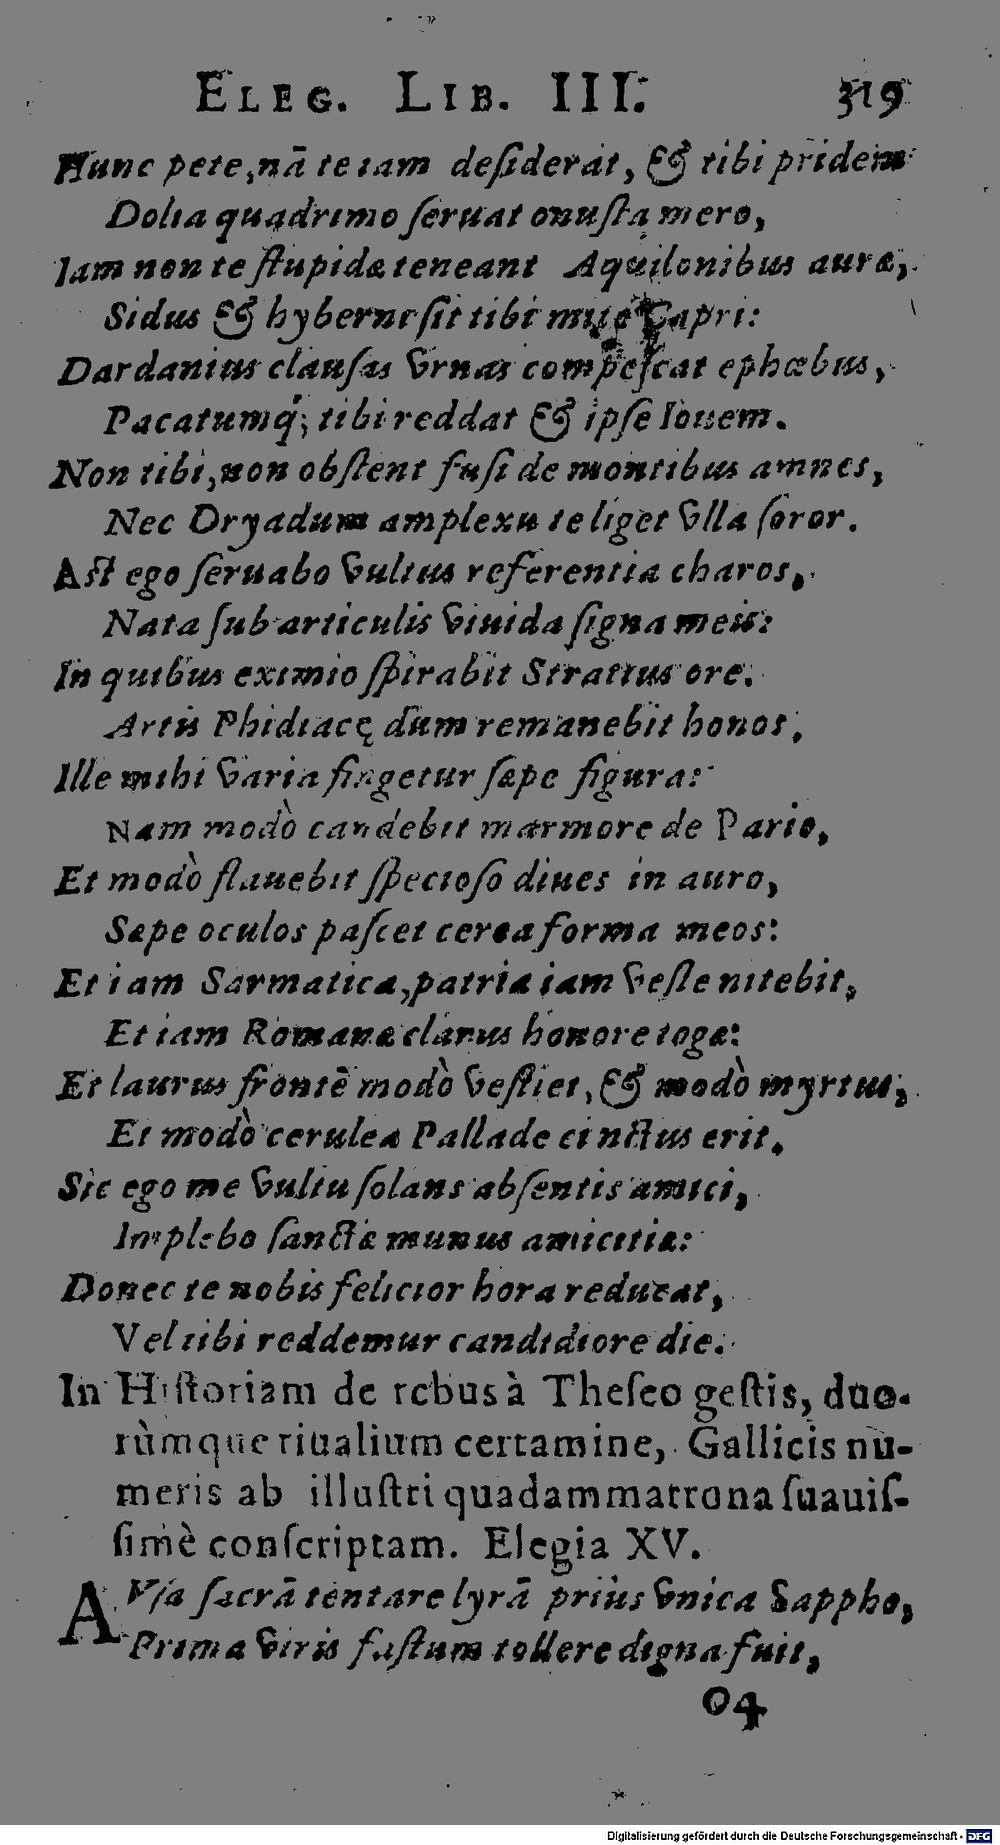 ELEG. LIB. III. 319
Hunc pete, nā te iam deſiderat, & tibi pridem
Dolia quadrimo ſeruat onuſta mero,
Iam non te ſtupidæ teneant Aquilonibus auræ,
Sidus & hyberni ſit tibi mite Capri:
Dardanius clauſas vrnas compeſcat ephœbus,
Pacatumq́; tibi reddat & ipſe Iouem.
Non tibi, non obſtent fuſi de montibus amnes,
Nec Dryadum amplexu te liget vlla ſoror.
Aſt ego ſeruabo vultus referentia charos,
Nata ſub articulis viuida ſigna meis:
In quibus eximio ſpirabit Strattus ore.
Artis Phidiacę dum remanebit honos,
Ille mihi varia fingetur ſæpe figura:
Nam modò candebit marmore de Pario,
Et modò flauebit ſpecioſo diues in auro,
Sæpe oculos paſcet cerea forma meos:
Et iam Sarmatica, patria iam veſte nitebit,
Et iam Romanæ clarus honore togæ:
Et laurus frontē modò veſtiet, & modò myrtus,
Et modò cerulea Pallade cinctus erit.
Sic ego me vultu ſolans abſentis amici,
Implebo ſanctæ munus amicitiæ:
Donec te nobis felicior hora reducat,
Vel tibi reddemur candidiore die.
In Hiſtoriam de rebus à Theſeo geſtis, duo-
rùmque riualium certamine, Gallicis nu-
meris ab illuſtri quadam matrona ſuauiſ-
ſimè conſcriptam. Elegia XV.
AVſa ſacrā tentare lyrā priùs vnica Sappho,
Prima viris faſtum tollere digna fuit,
O4
Digitalisierung gefördert durch die Deutsche Forschungsgemeinschaft - DFG